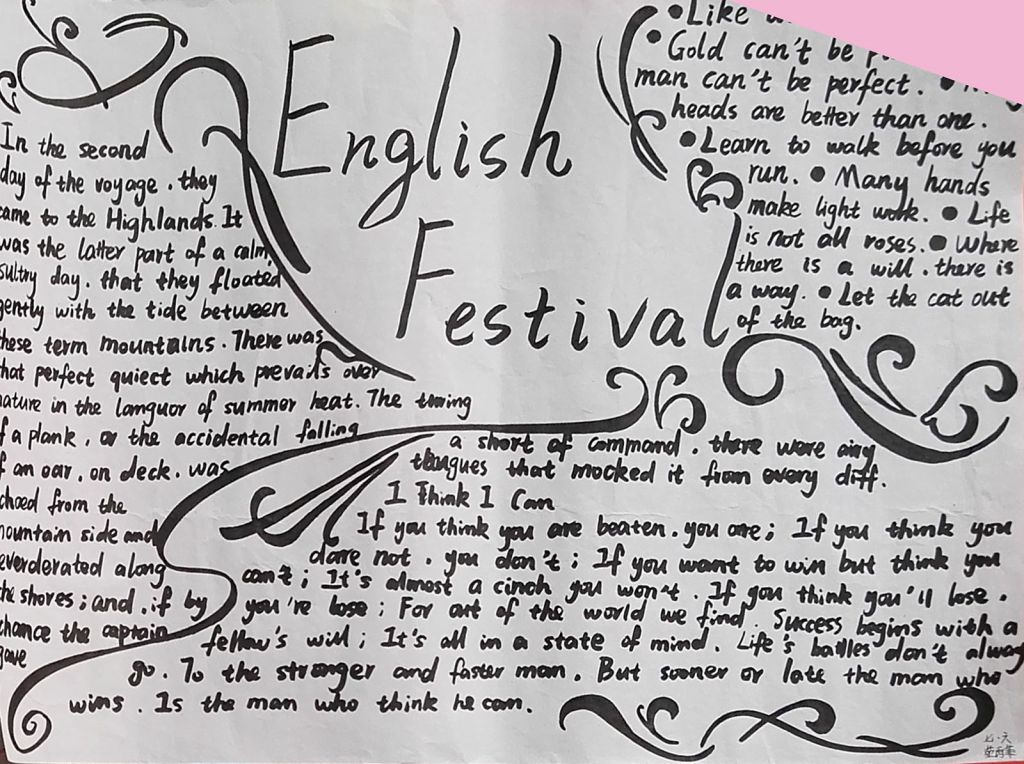 English
Festival
In the second
day of the voyage. they
came to the Highlands. It
was the latter part of a calm,
sultry day. that they floated
gently with the tide between
these term mountains. There was
that perfect quiect which prevails over
nature in the languor of summer heat. The turing
of a plank, or the accidental falling
of an oar, on deck. was
echoed from the
mountain side and
everderated along
the shores; and. if by
chance the captain
gave
a short of command. there were airy
tongues that mocked it from every diff.
I Think I Can
If you think you are beaten. you are; If you think you
dare not. you don't; If you want to win but think you
can't; It's almost a cinch you won't. If you think you'll lose.
you're lose; For out of the world we find. Success begins with a
fellow's will; It's all in a state of mind. Life's battles don't alway
go. To the stronger and faster man. But sooner or late the man who
wins. Is the man who think he can.
• Like
• Gold can't be
man can't be perfect. •
heads are better than one.
• Learn to walk before you
run. • Many hands
make light work. • Life
is not all roses. • Where
there is a will. there is
a way. • Let the cat out
of the bag.
七·六